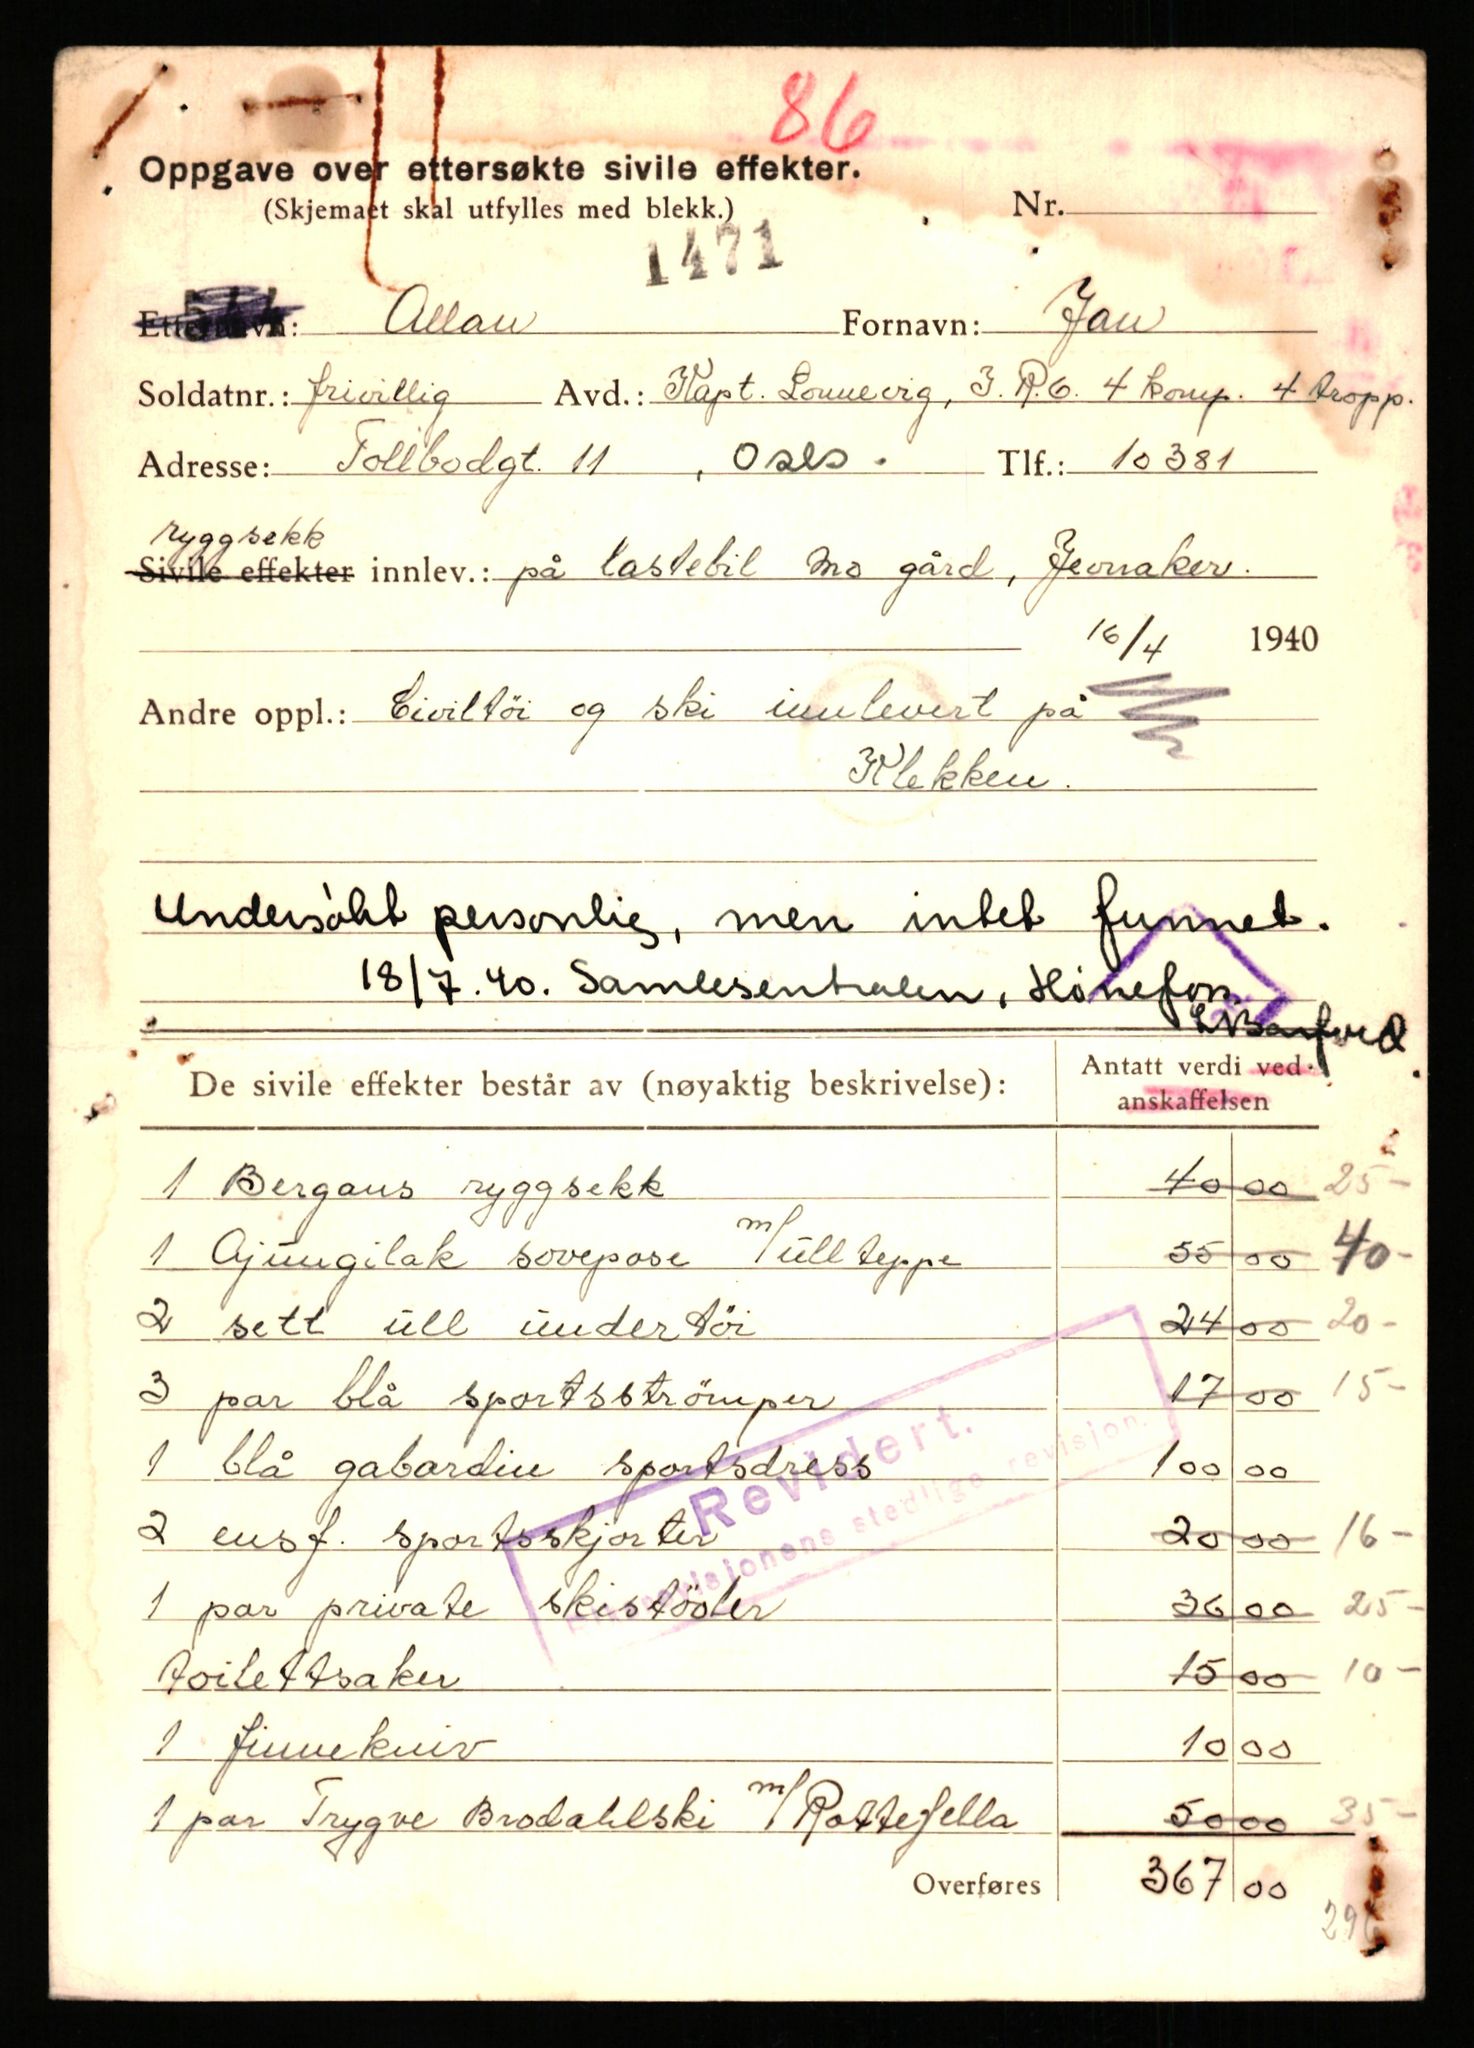 86
Oppgave over ettersøkte sivile effekter.
(Skjemaet skal utfylles med blekk.)
Nr.
1471
Etternavn: Allan Fornavn: Jan
Soldatnr.: frivillig Avd.: Kapt. Lonnevig, I.R.6. 4 komp. 4 tropp.
Adresse: Tollbodgt. 11, Oslo. Tlf.: 10381
ryggsekk
Sivile effekter innlev.: på lastebil Mo gård, Jevnaker.
16/4 1940
Andre oppl.: Civiltöi og ski innlevert på
Klekken.
Undersökt personlig, men intet funnet.
18/7.40. Samlesentralen, Hönefoss.
De sivile effekter består av (nøyaktig beskrivelse): Antatt verdi ved
anskaffelsen
1 Bergans ryggsekk 40 00 25-
1 Ajungilak sovepose m/ullteppe 55 00 40-
2 sett ull undertöi 24 00 20-
3 par blå sportsströmper 17 00 15-
1 blå gabardin sportsdress 100 00
2 ensf. sportsskjorter 20 00 16-
1 par private skistövler 36 00 25-
toilettsaker 15 00 10-
1 finnekniv 10 00
1 par Trygve Brodahlski m/Rottefella 50 00 35-
Overføres 367 00
296
Revidert.
stedlige revisjon.